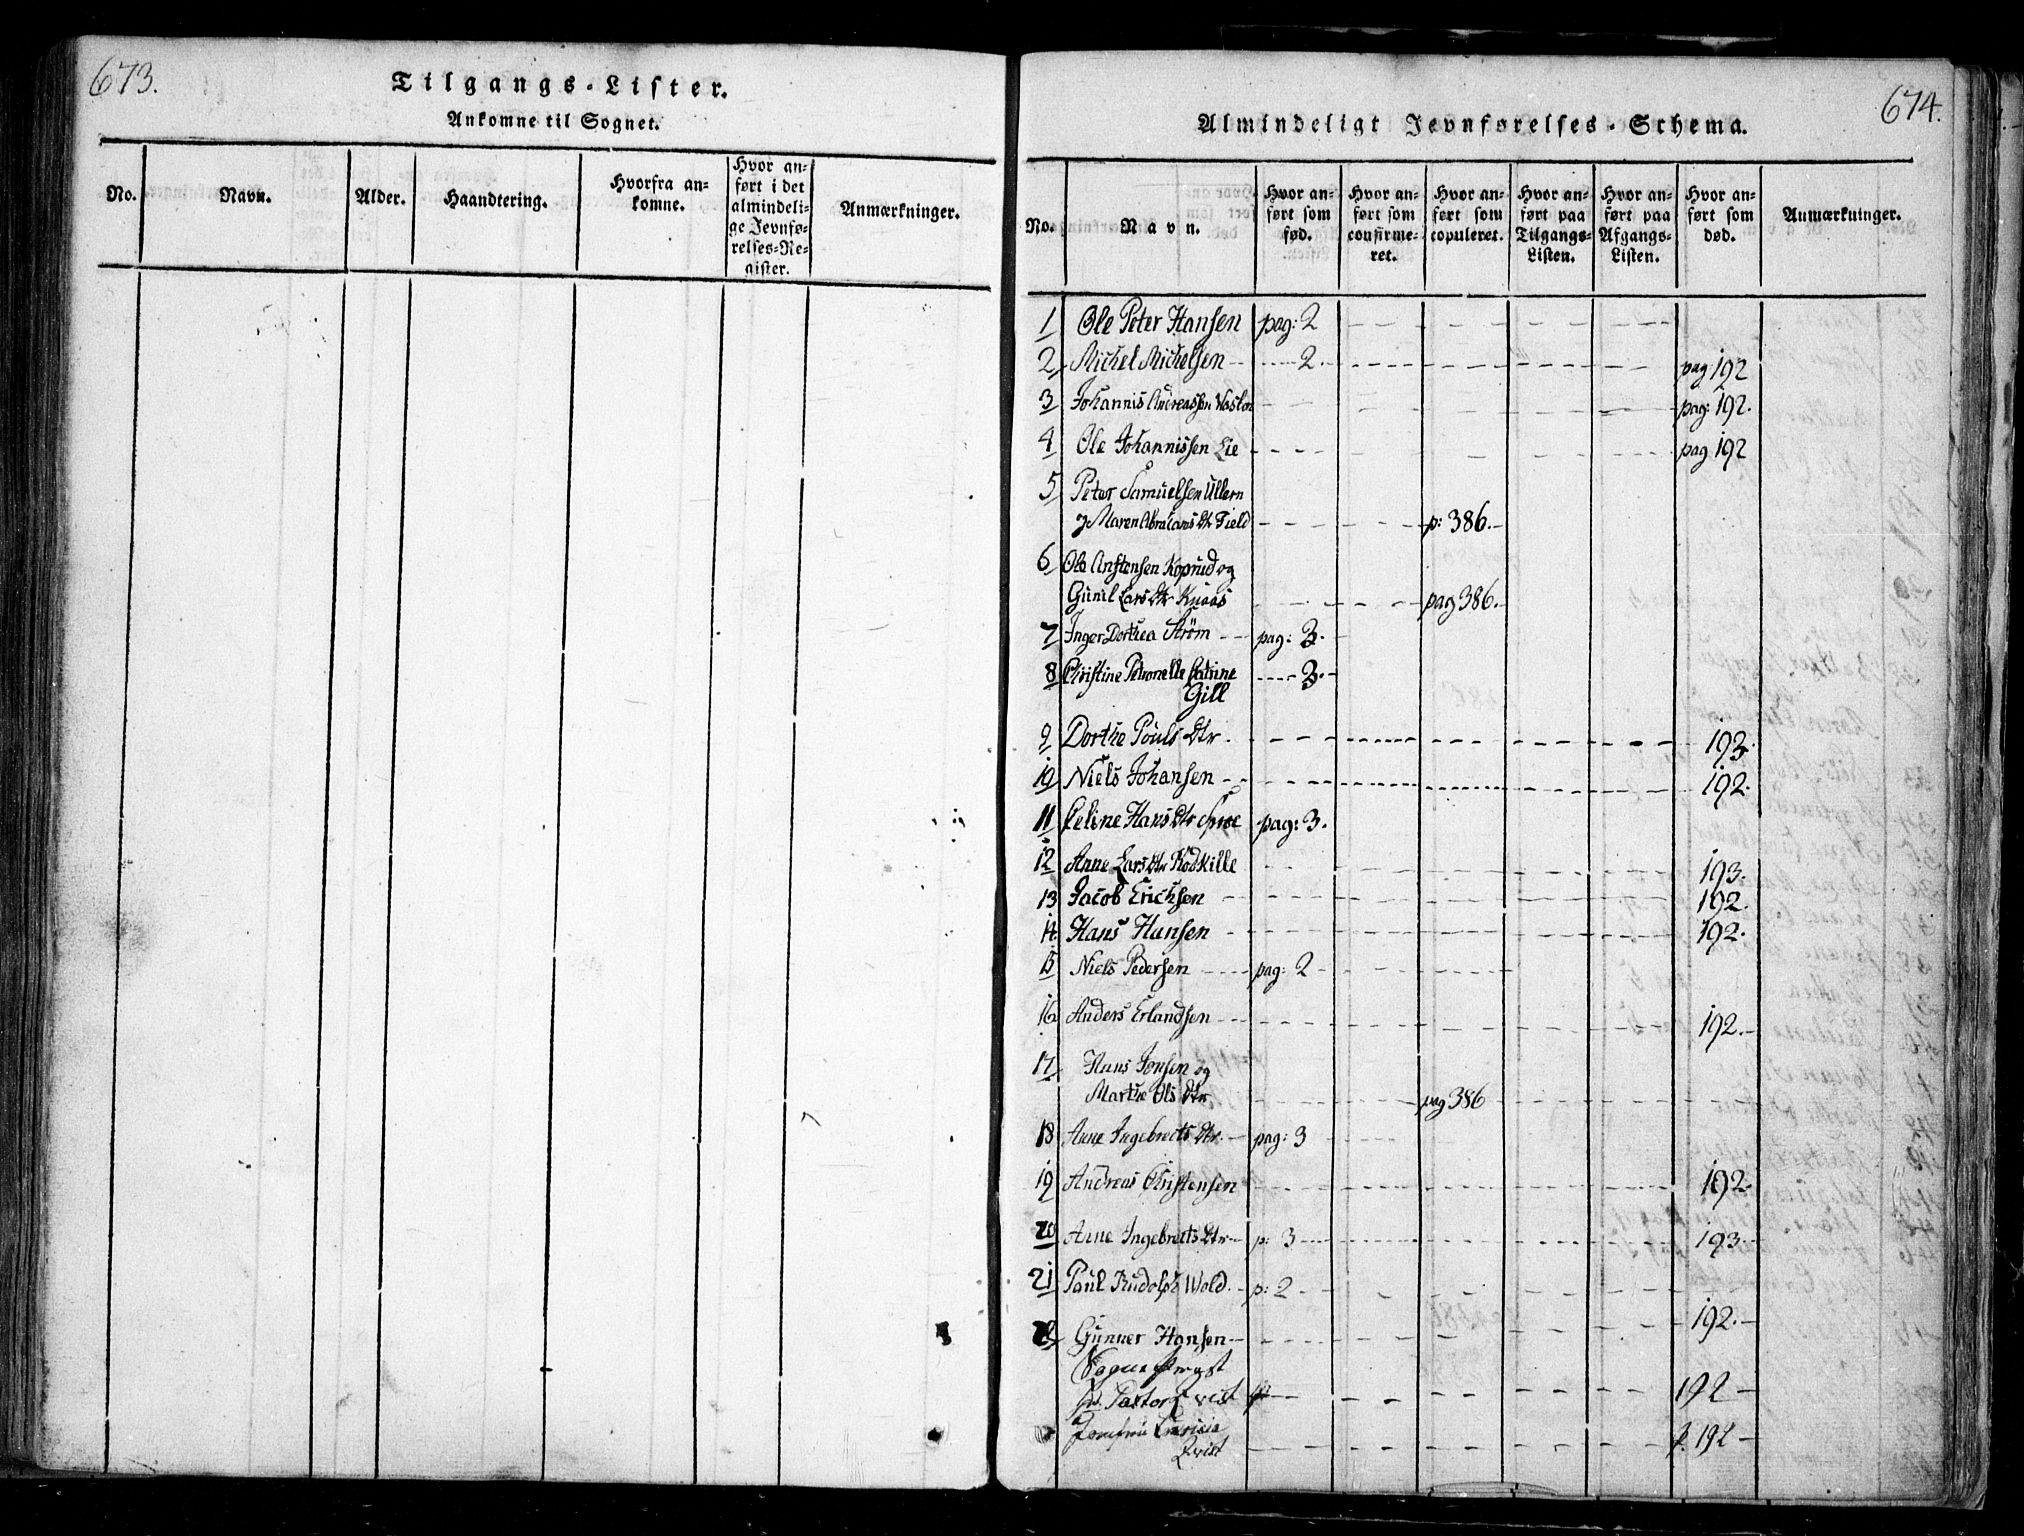 673.
Tilgangs-Lister.
Ankomne til Sognet.
No.
Navn.
Alder.
Haandtering.
Hvorfra an-
komne.
Hvor an-
ført i det
almindeli-
ge Jevnfø-
relses-Re-
gister.
Anmærkninger.
674.
Almindeligt Jevnførelses-Schema.
No.
Navn.
Hvor an-
ført som
fød.
Hvor an-
ført som
confirme-
ret.
Hvor an-
ført som
copuleret.
Hvor an-
ført paa
Tilgangs-
Listen.
Hvor an-
ført paa
Afgangs-
Listen.
Hvor an-
ført som
død.
Anmærkninger.
1 Ole Peter Hansen pag: 2
2 Michel Michelsen 2. pag 192
3 Johannis Andreassen pag: 192.
4 Ole Johannissen Lie pag 192
5 Peter Samuelsen Ullern
Maren Abrahams Dtr Field p: 386.
6 Ole Anstensen Koprud og
Gunil Lars Dtr Knaas pag 386.
7 Inger Dorthea Strøm pag: 3.
8 Christine Petronelle Catrine 3.
Gill
9 Dorthe Pouls Dtr. 193.
10 Niels Johansen 192.
11 Celine Hans Dtr Sproe pag: 3.
12 Anne Lars Dtr Rodkille 193.
13 Jacob Erichsen 192.
14 Hans Hansen 192.
15 Niels Pedersen pag: 2
16 Anders Erlandsen 192.
17 Hans Jonsen og
Marthe Ols Dtr pag 386
18 Anne Ingebrects Dtr. pag: 3
19 Andreas Christensen 192.
20 Anne Ingebrects Dtr p: 3 193.
21 Paul Rudolph Wold. p: 2
22 Gunner Hansen 192.
Sogne Præst
Hr. Pastor Qvist 192
Jomfrue
Qvist p. 192